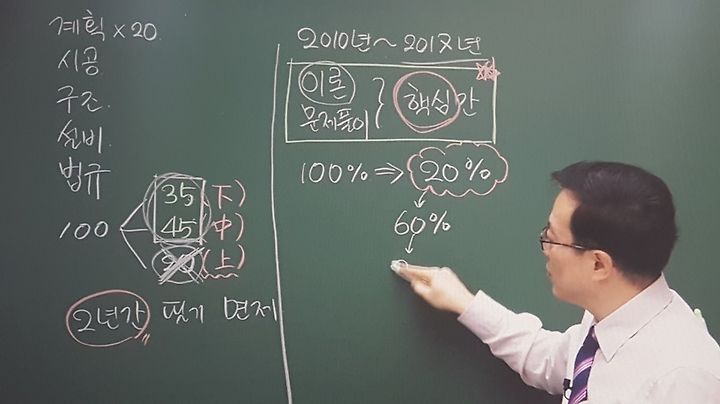 계획 × 20
시공
구조
설비
법규
100
35 (下)
45 (中)
20 (上)
2년간 필기 면제
2010년 ~ 2017년
이론
문제풀이
핵심만
100% ⇒ 20%
60%